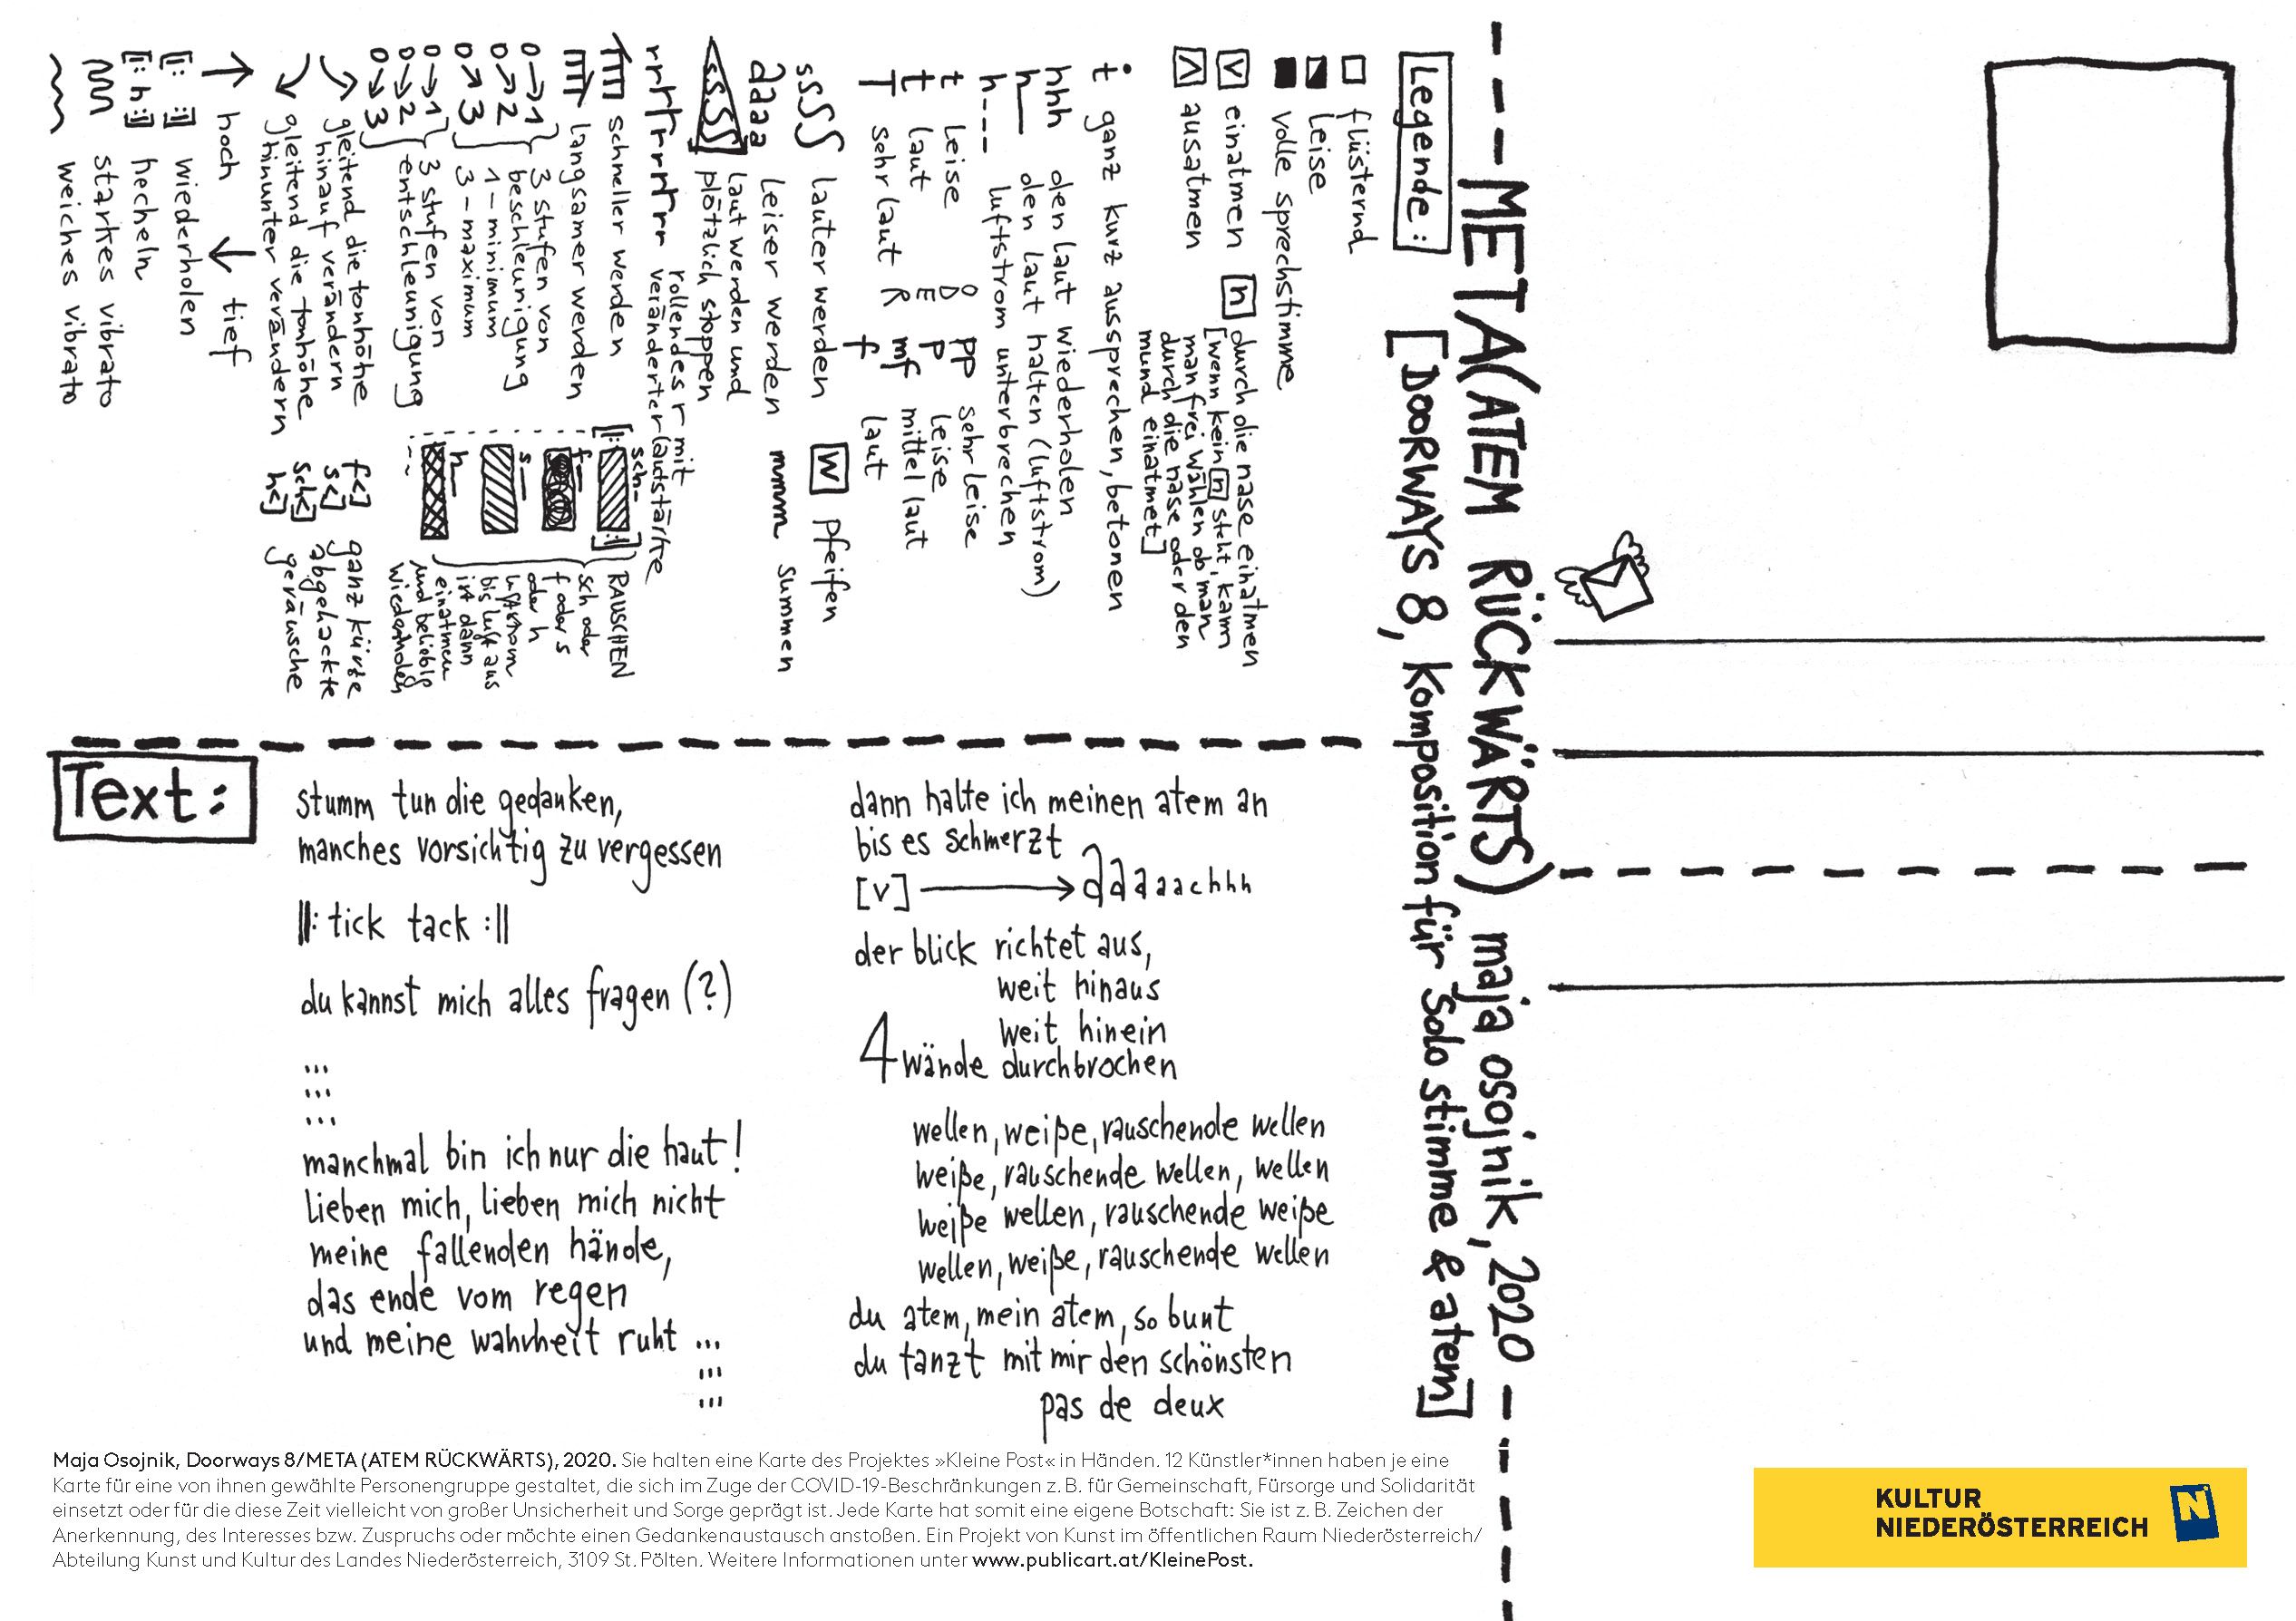 META(ATEM RÜCKWÄRTS) maja osojnik, 2020
[DOORWAYS 8, Komposition für Solo stimme & atem]
Legende:
flüsternd
leise
volle sprechstimme
[v] einatmen [n] durch die nase einatmen
[wenn kein [n] steht, kann
man frei wählen ob man
durch die nase oder den
mund einatmet]
[ʌ] ausatmen
t ganz kurz aussprechen, betonen
hhh den laut wiederholen
h— den laut halten (luftstrom)
h--- luftstrom unterbrechen
t leise
t laut
T sehr laut
ODER
pp sehr leise
p leise
mf mittel laut
f laut
ssss lauter werden
[w] pfeifen
aaaa leiser werden
mmmm summen
ssss laut werden und
plötzlich stoppen
rrrrrrrrr rollendes r mit
veränderter lautstärke
schneller werden
langsamer werden
0→1
0→2
0→3
3 stufen von
beschleunigung
1-minimum
3-maximum
0→1
0→2
0→3
3 stufen von
entschleunigung
gleitend die tonhöhe
hinauf verändern
gleitend die tonhöhe
hinunter verändern
↑ hoch ↓ tief
[: :] wiederholen
[: h :] hecheln
starkes vibrato
weiches vibrato
sch—
f—
s—
h—
RAUSCHEN
sch oder
f oder s
oder h
luftstrom
bis luft aus
ist dann
einatmen
und beliebig
wiederholen
f<]
s<]
sch<]
h<]
ganz kurze
abgehackte
geräusche
Text:
stumm tun die gedanken,
manches vorsichtig zu vergessen
||: tick tack :||
du kannst mich alles fragen (?)
...
...
...
manchmal bin ich nur die haut!
lieben mich, lieben mich nicht
meine fallenden hände,
das ende vom regen
und meine wahrheit ruht ...
...
...
dann halte ich meinen atem an
bis es schmerzt
[v] → aaaaachhh
der blick richtet aus,
weit hinaus
weit hinein
4 wände durchbrochen
wellen, weiße, rauschende wellen
weiße, rauschende wellen, wellen
weiße wellen, rauschende weiße
wellen, weiße, rauschende wellen
du atem, mein atem, so bunt
du tanzt mit mir den schönsten
pas de deux
Maja Osojnik, Doorways 8/META (ATEM RÜCKWÄRTS), 2020. Sie halten eine Karte des Projektes »Kleine Post« in Händen. 12 Künstler*innen haben je eine
Karte für eine von ihnen gewählte Personengruppe gestaltet, die sich im Zuge der COVID-19-Beschränkungen z. B. für Gemeinschaft, Fürsorge und Solidarität
einsetzt oder für die diese Zeit vielleicht von großer Unsicherheit und Sorge geprägt ist. Jede Karte hat somit eine eigene Botschaft: Sie ist z. B. Zeichen der
Anerkennung, des Interesses bzw. Zuspruchs oder möchte einen Gedankenaustausch anstoßen. Ein Projekt von Kunst im öffentlichen Raum Niederösterreich/
Abteilung Kunst und Kultur des Landes Niederösterreich, 3109 St. Pölten. Weitere Informationen unter www.publicart.at/KleinePost.
KULTUR
NIEDERÖSTERREICH
N